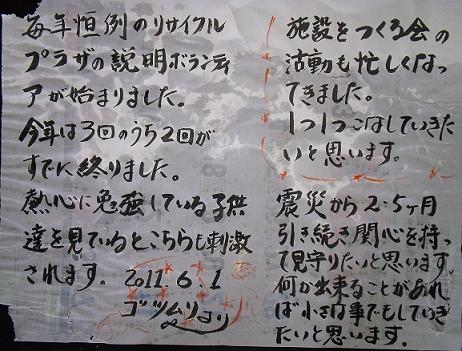 毎年恒例のリサイクル
プラザの説明ボランティ
アが始まりました。
今年は3回のうち2回が
すでに終りました。
熱心に勉強している子供
達を見ているとこちらも刺激
されます。2011.6.1
施設をつくる会の
活動も忙しくなっ
てきました。
1つ1つこなしていきた
いと思います。
震災から2.5ヶ月
引き続き関心を持っ
て見守りたいと思います。
何か出来ることがあれ
ば小さな事でもしていき
たいと思います。